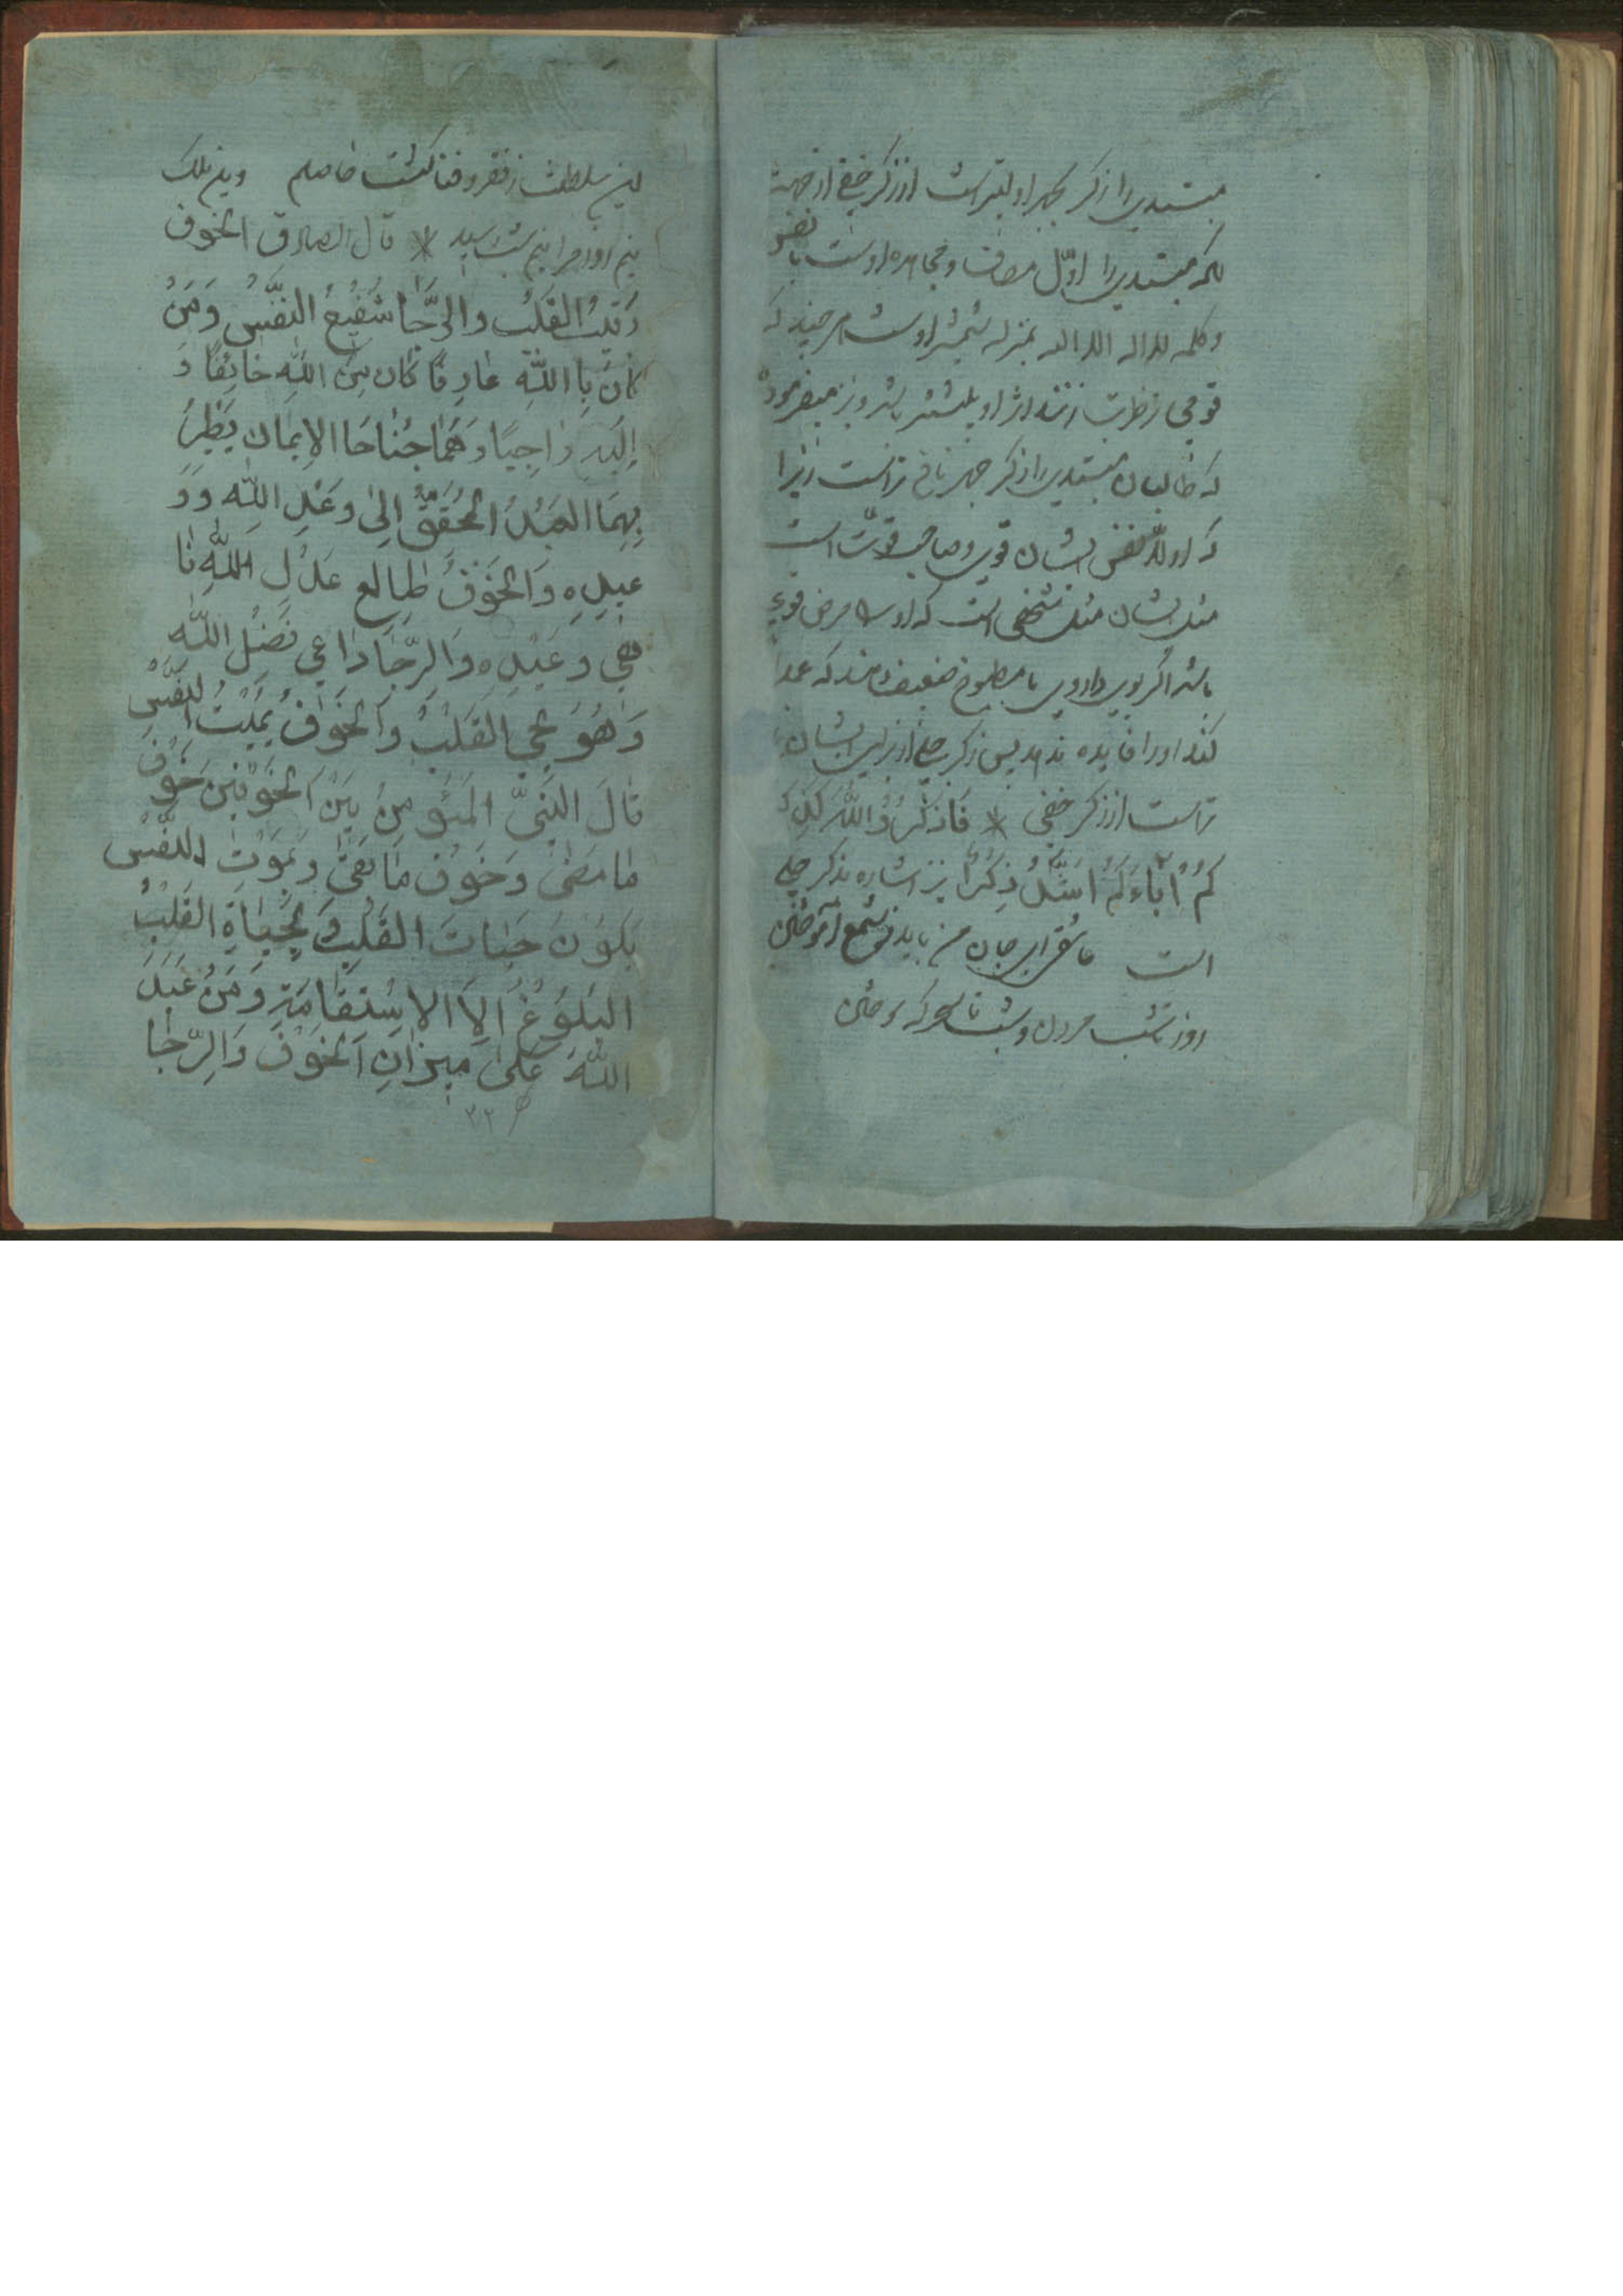 مبتدي را ذكر بجهر اوليتر است از ذكر خفي از جهة
كه مبتدي را اوّل مصاف و مجاهده اوست با نفس
وكلمه لا اله الا الله بمنزله شمشير اوست هر چند كه
قوي تر ضربت زنند اثر او بيشتر باشد و نيز ميفرمود
كه طالبان مبتدي را ذكر جهر نافع تر است زيرا
كه اولا نفس ايشان قوي و صاحب قوّت است
مثل ايشان مثل شخصي است كه او را مرض قوي
باشد اگر بوي داروي يا مطبوخ ضعيف دهند كه عمدا
كند او را فايده ندهد پس ذكر جلي از براي ايشان
تر است از ذكر خفي * فَاذكُرُوْاللّهَ كَذِكْرِ
كُمْ اٰبَاءَكُمْ اَشَدُّ ذِكْرًا نيز اشاره بذكر جلي
است عاشقا بر جان من بايد ز شمع آموختن
روز تا شب مردن و شب تا سحرگه سوختن
اين سلطنت ز فقر و فنا گشت حاصلم
قال الصادق الخوف
رَقيبُ القَلبُ والرَّجَا شَفيعُ النَفّسُ وَمَنْ
كانَ بِااللّهِ عَارِفًا كَان مِنَ اللّهِ خائِفًا وَ
اِلَيهِ رَاجِيًا وَهُمَا جَناحَا الاِيمان يَطِيرُ
بِهِمَا العَبْدُ المُحَقِّقُ اِلىٰ وعَدِ اللّه وَوَ
عيدِه وَالخَوَفُ طالع عَدْلِ اللّهِ نا
هي وعَيْدِه وَالرَّجَا دَاعِي فَضْلُ اللّه
وَهُوَ يُحيِي القَلْبُ وَالخَوَفُ يُمَيْتُ النَفّسُ
قالَ النَبيّ المَؤمِنُ بَيْنَ الخَوْفَيْن خَوْفُ
مَا مَضىٰ وَخَوْف مَا بَقىٰ وبَمَوْتِ النّفسُ
يَكوُنُ حَيٰاتَ القَلْبُ وَبِحَيٰاةِ القَلبُ
البُلوُغُ اِلاَ الاِسْتقامَةِ وَمَنْ عَبَدَ
اللّهَ عَلىٰ مِيزانِ الخَوَفُ وَالرَّجَا